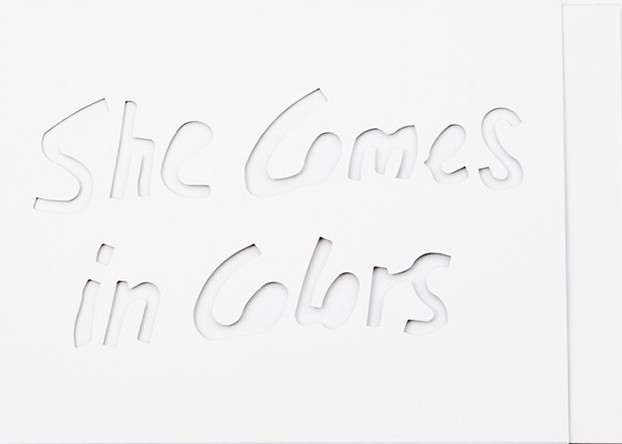 She Comes
in Colors